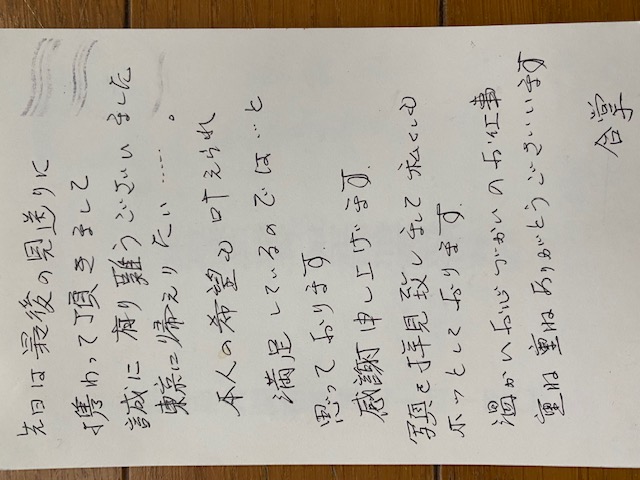 先日は最後の見送りに
携わって頂きまして
誠に有り難うございました
東京に帰えりたい……。
本人の希望も叶えられ
満足しているのでは…と
思っております.
感謝申し上げます.
写真を拝見致しまして私くしも
ホッとしております.
温かいお心づかいのお仕事
重ね重ねありがとうございます
合掌